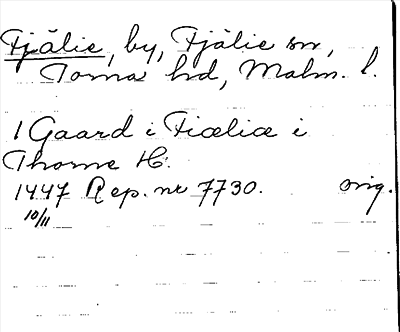 Fjälie, by, Fjälie sn,
Torna hd, Malm. l.
1 Gaard i Fiæliæ i
Thorne H.
1447 Rep. nr 7730. orig.
10/11